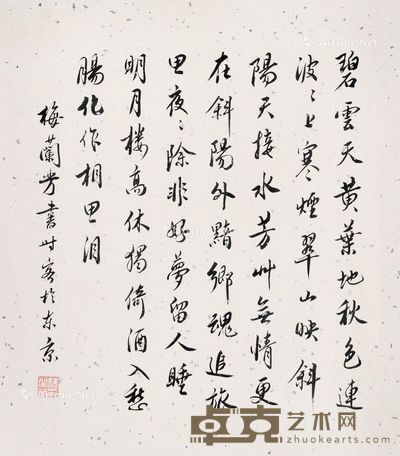 碧雲天黄葉地秋色連
波〻上寒煙翠山映斜
陽天接水芳艸無情更
在斜陽外黯鄉魂追旅
思夜〻除非好夢留人睡
明月樓高休獨倚酒入愁
腸化作相思淚
梅蘭芳書時客於東京
卓克艺术网
zhuokearts.com